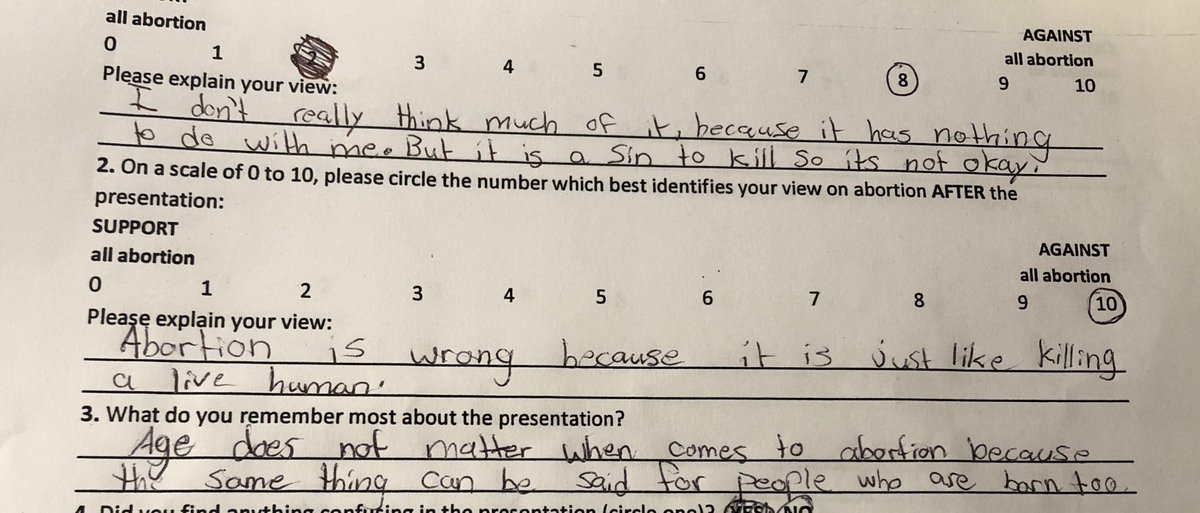 all abortion
AGAINST
all abortion
0 1 2 3 4 5 6 7 8 9 10
Please explain your view:
I don't really think much of it, because it has nothing
to do with me. But it is a Sin to kill so its not okay.
2. On a scale of 0 to 10, please circle the number which best identifies your view on abortion AFTER the
presentation:
SUPPORT
all abortion
AGAINST
all abortion
0 1 2 3 4 5 6 7 8 9 10
Please explain your view:
Abortion is wrong because it is just like killing
a live human.
3. What do you remember most about the presentation?
Age does not matter when comes to abortion because
the same thing can be said for people who are born too.
4. Did you find anything confusing in the presentation (circle one)? YES NO